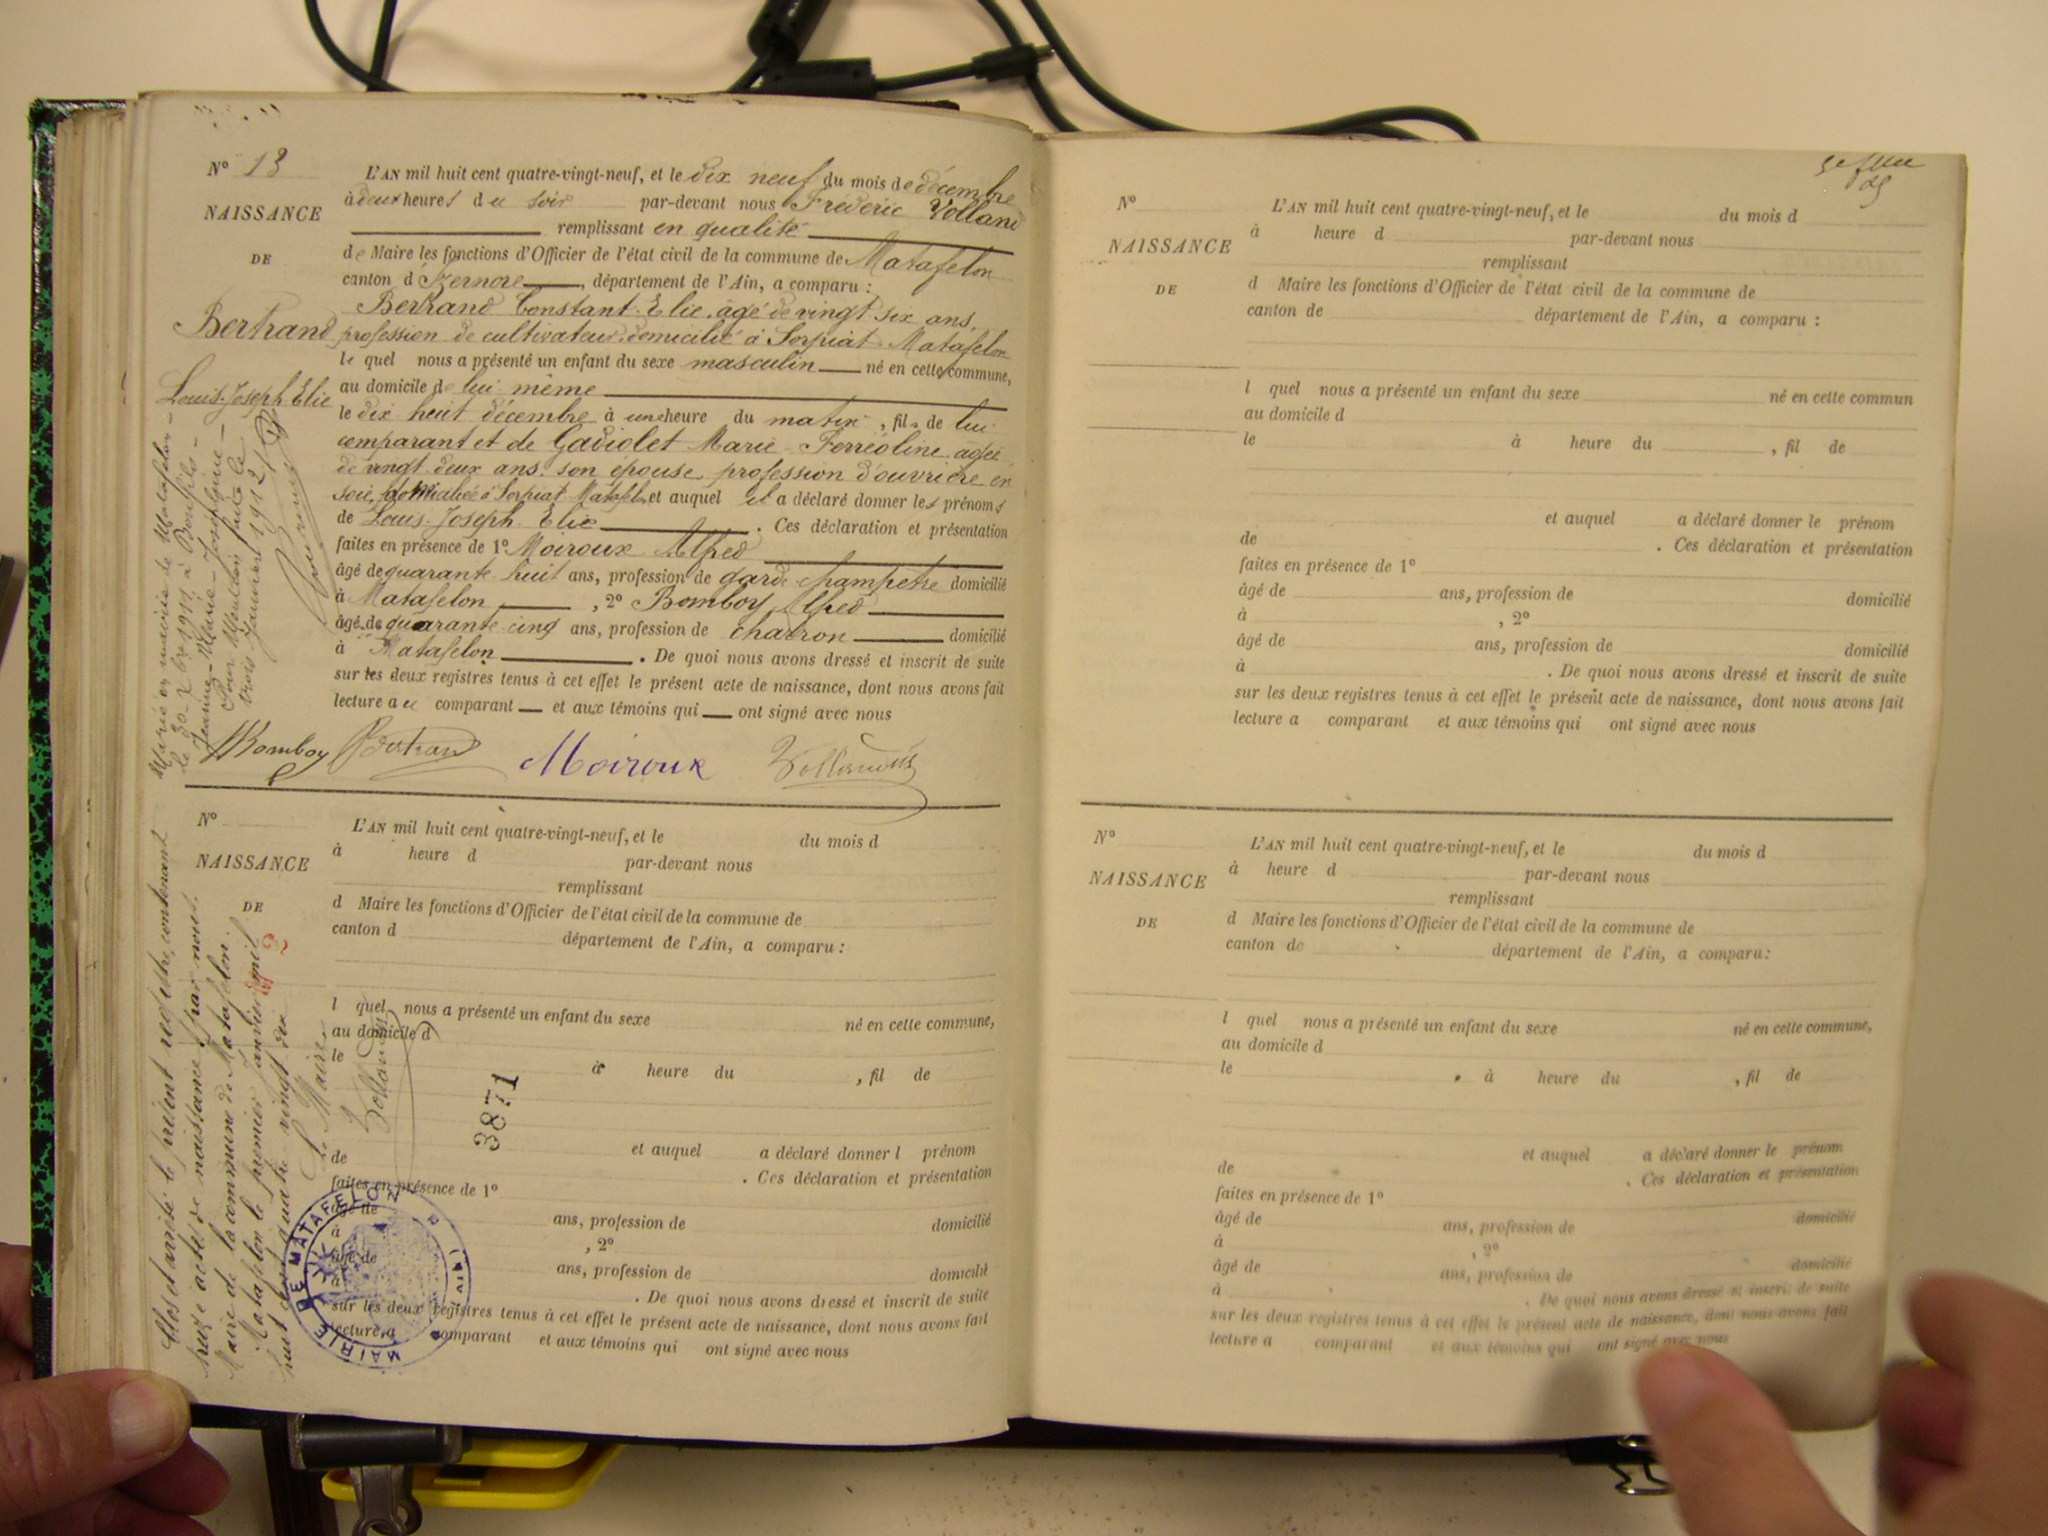 N° 13
NAISSANCE
DE
Bertrand
Louis-Joseph Elie
L'AN mil huit cent quatre-vingt-neuf, et le dix neuf du mois de décembre
à deux heures du soir par-devant nous Fréderic Volland
remplissant en qualité
de Maire les fonctions d'Officier de l'état civil de la commune de Matafelon
canton d'Izernore, département de l'Ain, a comparu :
Bertrand Constant Elie, âgé de vingt six ans,
profession de cultivateur, domicilié à Sorpiat Matafelon
le quel nous a présenté un enfant du sexe masculin né en cette commune,
au domicile de lui même
le dix huit décembre à une heure du matin, fils de lui
comparant et de Gadiolet Marie Ferréoline âgée
de vingt deux ans, son épouse, profession d'ouvrière en
soie, domiciliée à Sorpiat Matafelon et auquel il a déclaré donner les prénoms
de Louis Joseph Elie. Ces déclaration et présentation
faites en présence de 1° Moiroux Alfred
âgé de quarante huit ans, profession de garde champêtre domicilié
à Matafelon, 2° Bomboy Alfred
âgé de quarante cinq ans, profession de charron domicilié
à Matafelon. De quoi nous avons dressé et inscrit de suite
sur les deux registres tenus à cet effet le présent acte de naissance, dont nous avons fait
lecture au comparant et aux témoins qui ont signé avec nous
Bomboy Bertrand Moiroux Volland
Marié en mairie de Matafelon
le 30 1911 à
Jeanne-Marie-Joséphine
trois Janvier 1912
N°
NAISSANCE
DE
L'AN mil huit cent quatre-vingt-neuf, et le du mois d
à heure d par-devant nous
remplissant
d Maire les fonctions d'Officier de l'état civil de la commune de
canton d département de l'Ain, a comparu :
l quel nous a présenté un enfant du sexe né en cette commune,
au domicile d
le à heure du , fil de
et auquel a déclaré donner l prénom
de . Ces déclaration et présentation
faites en présence de 1°
âgé de ans, profession de domicilié
à , 2°
âgé de ans, profession de domicilié
à . De quoi nous avons dressé et inscrit de suite
sur les deux registres tenus à cet effet le présent acte de naissance, dont nous avons fait
lecture a comparant et aux témoins qui ont signé avec nous
Clos et arrêté le présent registre, contenant
treize actes de naissance, par nous,
Maire de la commune de Matafelon.
Matafelon le premier janvier mil
huit cent quatre vingt dix
Le Maire
Volland
3871
MAIRIE DE MATAFELON
AIN
N°
NAISSANCE
DE
L'AN mil huit cent quatre-vingt-neuf, et le du mois d
à heure d par-devant nous
remplissant
d Maire les fonctions d'Officier de l'état civil de la commune de
canton de département de l'Ain, a comparu :
l quel nous a présenté un enfant du sexe né en cette commun
au domicile d
le à heure du , fil de
et auquel a déclaré donner le prénom
de . Ces déclaration et présentation
faites en présence de 1°
âgé de ans, profession de domicilié
à , 2°
âgé de ans, profession de domicilié
à . De quoi nous avons dressé et inscrit de suite
sur les deux registres tenus à cet effet le présent acte de naissance, dont nous avons fait
lecture a comparant et aux témoins qui ont signé avec nous
N°
NAISSANCE
DE
L'AN mil huit cent quatre-vingt-neuf, et le du mois d
à heure d par-devant nous
remplissant
d Maire les fonctions d'Officier de l'état civil de la commune de
canton de département de l'Ain, a comparu :
l quel nous a présenté un enfant du sexe né en cette commune,
au domicile d
le à heure du , fil de
et auquel a déclaré donner le prénom
de . Ces déclaration et présentation
faites en présence de 1°
âgé de ans, profession de domicilié
à , 2°
âgé de ans, profession de domicilié
à . De quoi nous avons dressé et inscrit de suite
sur les deux registres tenus à cet effet le présent acte de naissance, dont nous avons fait
lecture a comparant et aux témoins qui ont signé avec nous